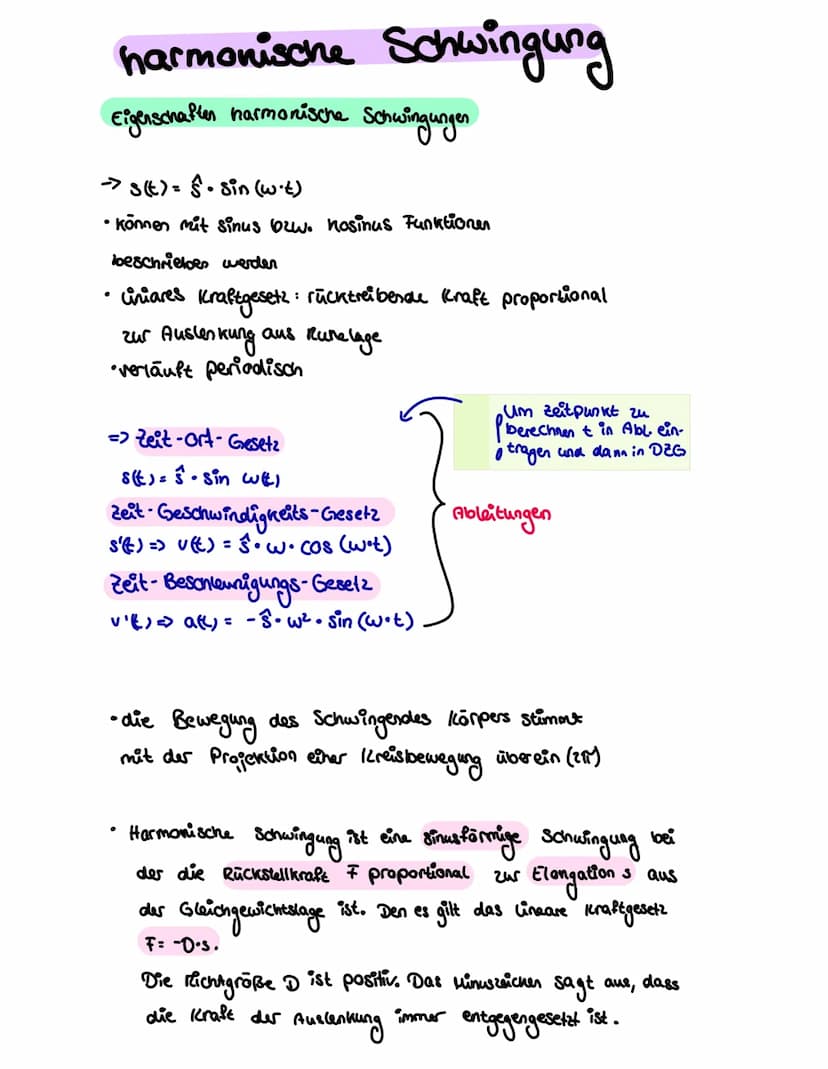 harmonische Schwingung
Eigenschaften harmonische Schwingungen
→ s(t) = ŝ • sin (ω·t)
• können mit sinus bzw. kosinus Funktionen
beschrieben werden
• liniares Kraftgesetz: rücktreibende Kraft proportional
zur Auslenkung aus Ruhelage
• verläuft periodisch
=> Zeit-Ort-Gesetz
s(t) = ŝ • sin ω(t)
Zeit-Geschwindigkeits-Gesetz
s'(t) => v(t) = ŝ • ω • cos (ω•t)
Zeit-Beschleunigungs-Gesetz
v'(t) => a(t) = -ŝ • ω² • sin (ω•t)
Um Zeitpunkt zu
berechnen t in Abl. ein-
tragen und dann in DZG
Ableitungen
• die Bewegung des Schwingendes Körpers stimmt
mit der Projektion einer Kreisbewegung überein (2π)
• Harmonische Schwingung ist eine sinusförmige Schwingung bei
der die Rückstellkraft F proportional zur Elongation s aus
der Gleichgewichtslage ist. Den es gilt das lineare Kraftgesetz
F= -D•s.
Die Richtgröße D ist positiv. Das Minuszeichen sagt aus, dass
die Kraft der Auslenkung immer entgegengesetzt ist.